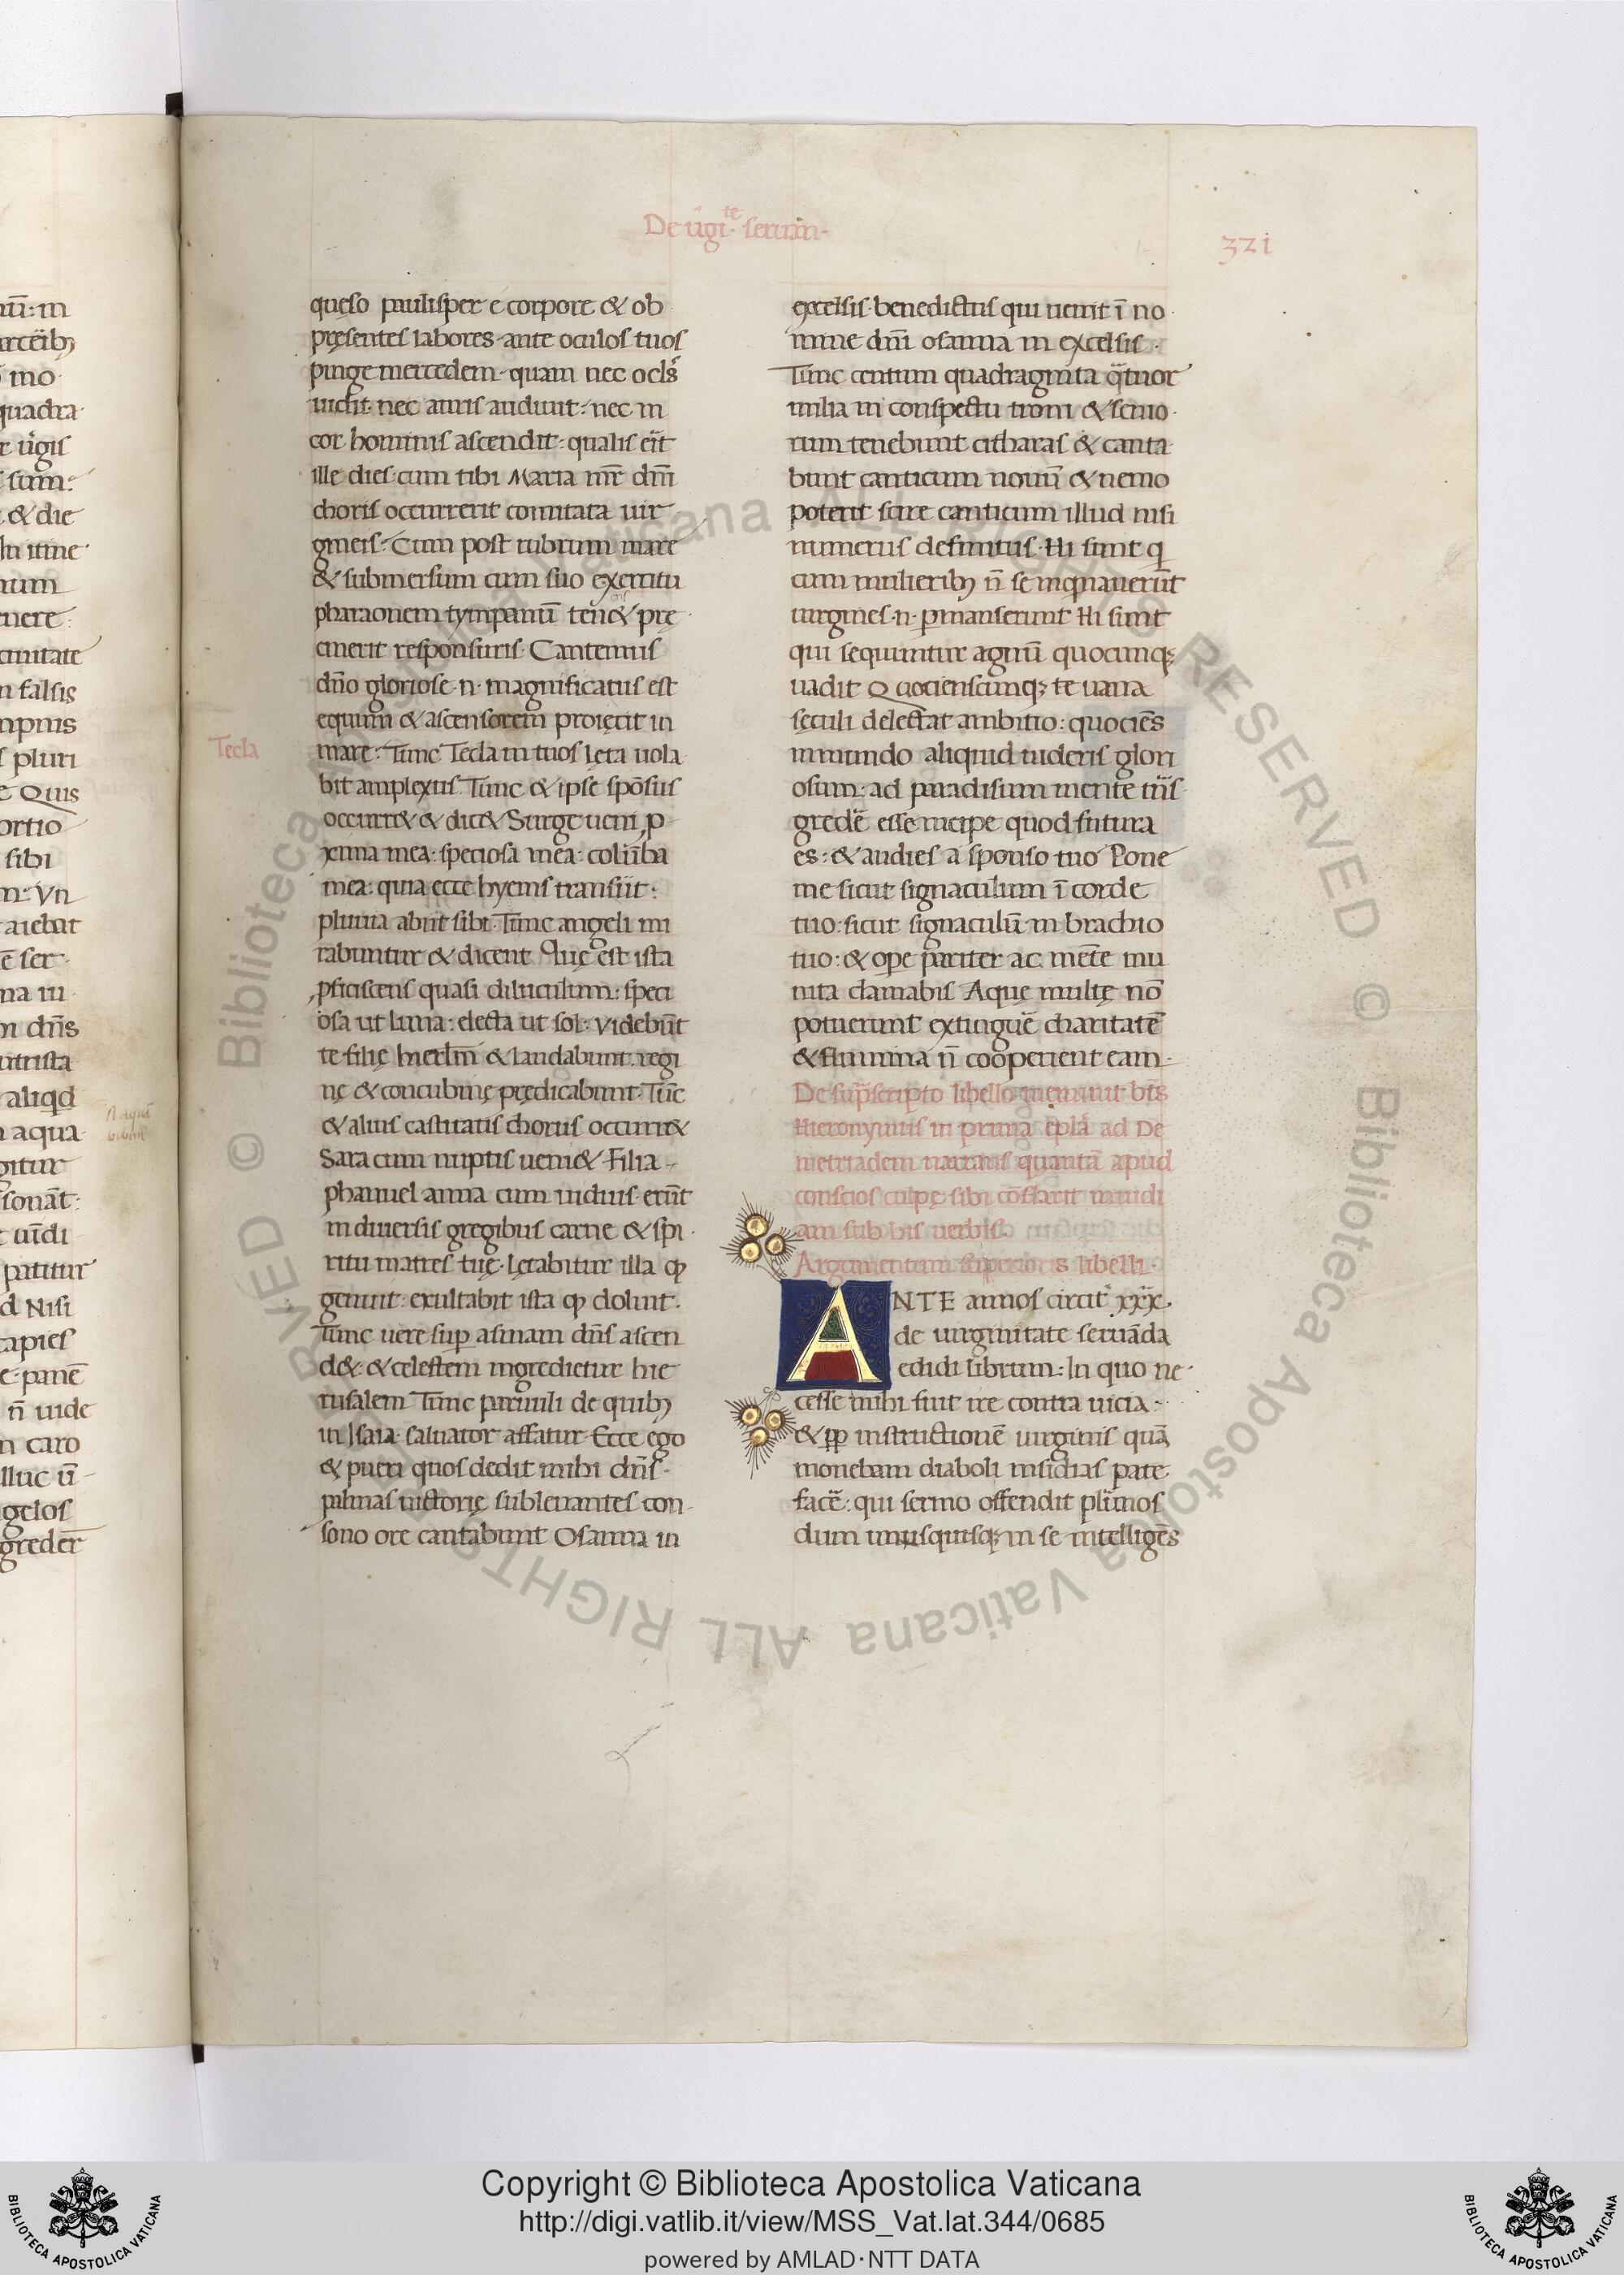 De ûgi.te seruan.
321
queso paulisper e corpore & ob
pręsentes labores ante oculos tuos
pinge mercedem. quam nec ocls
uidit. nec auris audiuit: nec in
cor hominis ascendit: qualis erit
ille dies cum tibi Maria mr̄ dnī
choris occurrerit comitata uir
gineis. Cum post rubrum mare
& submersum cum suo exercitu
pharaonem tympanū ten& pre
cinerit responsuris. Cantemus
dn̄o gloriose .n. magnificatus est
equum & ascensorem proiecit in
mare: Tunc Tecla in tuos lęta uola
Tecla
bit amplexus. Tunc & ipse spōsus
occurr& & dic& Surge ueni p
xima mea: speciosa mea: colūba
mea: quia ecce hyems transiit:
pluuia abiit sibi. Tunc angeli mi
rabuntur & dicent Quę est ista
pficiscens quasi diluculum: speci
osa ut luna: electa ut sol: Videbūt
te filię hierlm̄ & laudabunt. regi
nę & concubinę prędicabunt. Tūc
& alius castitatis chorus occurr&
Sara cum nuptis ueni& Filia
phanuel anna cum uiduis. erūt
in diuersis gregibus carne & spi
ritu matres tuę. Lętabitur illa q̄
genuit: exultabit ista q̄ doluit.
Tunc uere sup̄ asinam dn̄s ascen
d& & celestem ingredietur hie
rusalem Tunc paruuli de quibȝ
in Isaia saluator affatur. Ecce ego
& pueri quos dedit mihi dn̄s.
palmas uictorię subleuantes con
sono ore cantabunt Osanna in
excelsis. benedictus qui uenit ī no
mine dnī osanna in excelsis.
Tunc centum quadraginta q̄tuor
milia in conspectu troni & senio
rum tenebunt citharas & canta
bunt canticum nouū & nemo
poterit scire canticum illud nisi
numerus definitus. Hi sunt q
cum mulieribȝ n̄ se inqnauerūt
uirgines .n. pmanserunt Hi sunt
qui sequuntur agnū quocunqȝ
uadit Quotienscunqȝ te uana
sęculi delectat ambitio: quociēs
in mundo aliquid uideris glori
osum: ad paradisum mente trīs
gredē esse incipe quod futura
es: & audies a sponso tuo Pone
me sicut signaculum ī corde
tuo. sicut signaculū in brachio
tuo: & ope pariter ac mēte mu
nita clamabis Aquę multę nō
potuerunt extinguē charitatē
& flumina n̄ cooperient eam.
De suprīscripto libello meminit bt̄s
Hieronymus in prima epl̄a ad De
metriadem narrans quantā apud
conscios culpę sibi cōflarit inuidi
am sub his uerbis.
Argumentum superioris libelli.
ANTE annos circit̄ xxx.
de uirginitate seruāda
edidi librum: In quo ne
cesse mihi fuit ire contra uicia
& pp instructionē uirginis quā
monebam diaboli insidias pate
facē: qui sermo offendit plīmos
dum unusquisqȝ in se intelligēs
Copyright © Biblioteca Apostolica Vaticana
http://digi.vatlib.it/view/MSS_Vat.lat.344/0685
powered by AMLAD·NTT DATA